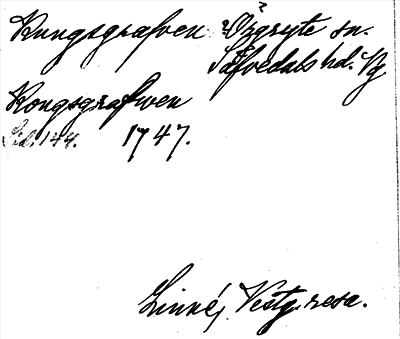 Kungsgrafven Örgryte sn.
Säfvedals hd. Vg
Kongsgrafwen
Sid. 144. 1747.
Linné, Vestg. resa.